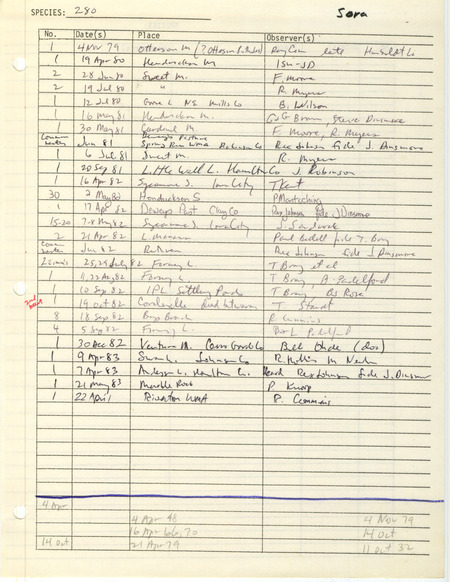 SPECIES: 280 Sora
No. Date(s) Place Observer(s)
1 4 Nov 79 Otterson M late Humboldt Co
1 19 Apr 80 Hendrickson M ISU-JD
2 28 Jun 80 Sweet M. F. Moore
2 19 Jul 80 " R. Myers
1 12 Jul 80 Goose L NE Mills Co B. Wilson
1 16 May 81 Hendrickson M. G & G Brown Steve Dinsmore
1 30 May 81 Cardinal M F. Moore, R. Myers
Jun 81 Spring Run WMA Dickinson Co Rex Johnson fide J. Dinsmore
1 6 Jul 81 Sweet M. R. Myers
1 20 Sep 81 Little Wall L. Hamilton Co J. Robinson
1 16 Apr 82 Sycamore S. Iowa City T Kent
30 2 May 80 Hendrickson S P Martsching
1 17 Apr 82 Deweys Past Clay Co Rex Johnson fide J Dinsmore
15-20 7-8 May 82 Sycamore S. Iowa City
2 21 Apr 82 L. Manawa fide T. Bray
Jun 82 Ruthven Rex Johnson fide J Dinsmore
25, 29 July 82 Forney L. T Bray et al
82 Forney L. T Bray, B. Padelford
1 10 Sep 82 IPL Settling Ponds T Bray B Rose
1 19 Oct 82 Coralville T Staudt
8 18 Sep 82 Bays Branch R Cummins
4 5 Sep 82 Forney L. B & L Padelford
1 30 Dec 82 Ventura M. Cerro Gordo Co (doc)
1 9 Apr 83 Swan L. Johnson Co R. Hollis
1 7 Apr 83 Anderson L. Hamilton Co. Heard Rex Johnson fide J. Dinsmore
1 21 May 83 Marble Rock P Knop
1 22 April Riverton WMA R. Cummins
4 Apr
4 Apr 48 4 Nov 79
16 Apr 66, 70 14 Oct
14 Oct 21 Apr 79 11 Oct 32